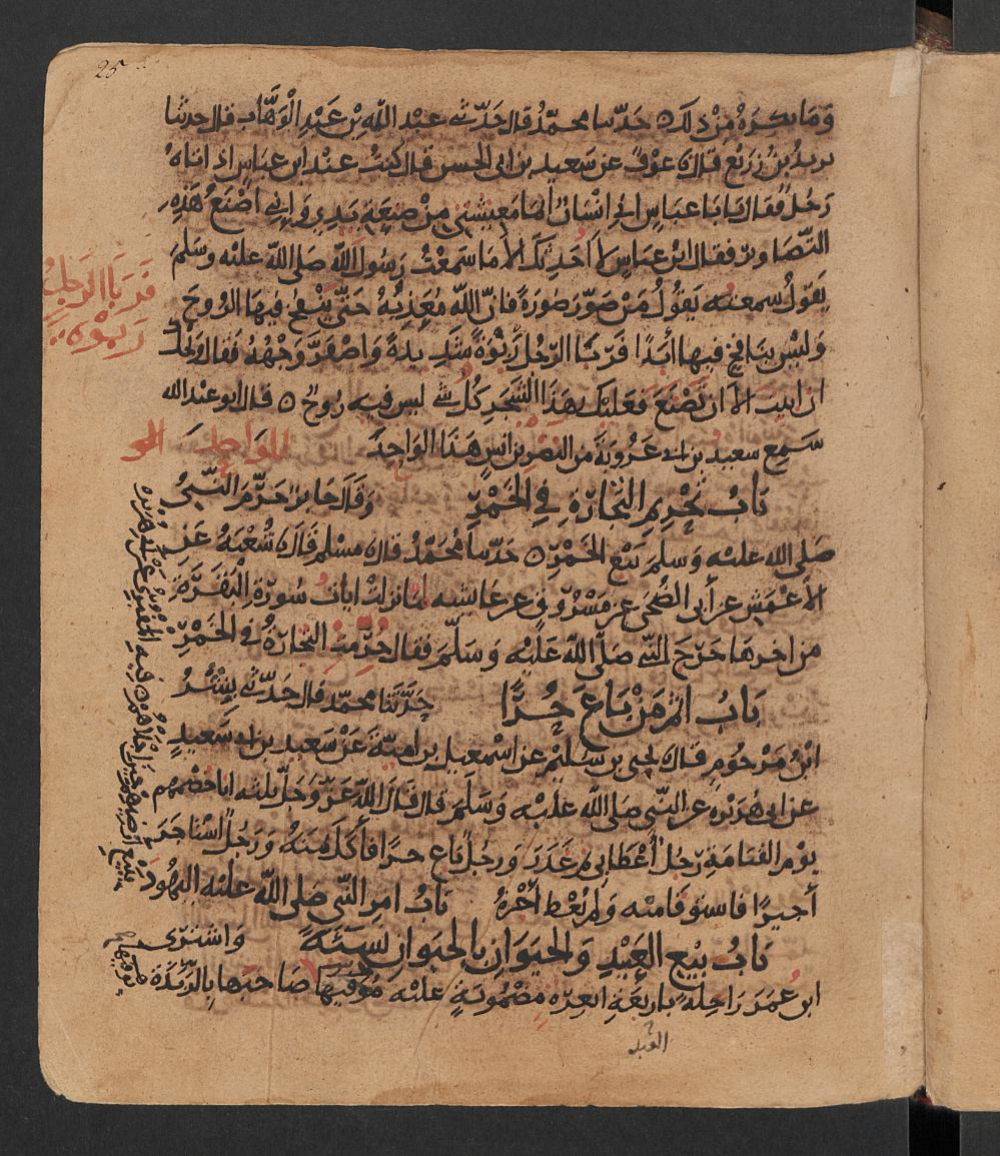 25
وَمَا يكره مِنْ ذلك ه حَدّثنا محمّدٌ قال حَدّثني عبد اللّه بْن عَبد الْوَهَّاب قال حدثنا
يريدُ بنُ زُرَيْع قال انا عوْفٌ عن سَعيد بن ابى الحسن قال كنتُ عند ابن عباس اذ اتاهُ
رَجُلٌ فقال يَا با عباسٍ انى انْسانٌ انما مَعيشتى مِنْ صنعَةِ يَدِى وَانى اصْنَعُ هَذِهِ
التّصَاوير فقال ابنُ عباسٍ لا احَدِثك الا مَا سَمعْتُ رَسُول اللّه صَلى اللّه عليْه وسَلم
يقول سمعته يَقولُ مَنْ صَوّر صُورَةً فانّ اللّه مُعَذِبُهُ حَتّى يَنْفخ فيهَا الرُوحَ
وَليْس بنافخٍ فيها ابَدًا فَرَبَا الرّجُل رَبْوَةً شَديدةً وَاصْفرّ وَجْهُهُ فقال وَيْحك
ان ابيت الا ان تصْنَعَ فعَليْكَ بهَذا الشجَرِ كُل شى ليس فيه رُوحٌ ه قال ابو عبْد الله
سَمِع سعيد بن ابى عَرُوبَة من النضر بن انسٍ هَذا الوَاحِدَ
بَابُ تحْرِيمِ التجارَةِ فِى الخَمْرِ وَقَالَ جَابرٌ حَرّمَ النّبىُّ
صَلى الله عليْه وَسلم بَيْع الخَمْرِ ه حَدّثنا محمّدٌ قال نا مسْلمٌ قال نا شُعْبَةُ عَن
الاعْمَش عن أبى الضُحَى عن مَسْرُوق عن عَايشه لما نزلتْ اياتُ سُورَة الْبَقَرَةِ
من اخرهَا خَرَجَ النبى صَلَى اللّه عَليْه وَسَلّم فقال حُرّمتْ التجارَةُ فى الخَمْرِ
بَابُ اثم مَنْ بَاعَ حُرًّا حَدّثنا محمّد قال حَدّثنى بِشْرُ
ابْنُ مَرْحُومٍ قال نا يحيى بن سُليْمٍ عن اسْمعيل بن اميّة عَنْ سَعيد بن ابى سَعيدٍ
عن ابى هُرَيْرة عن النبّى صَلى الله عليْه وَسَلّمَ قال قَالَ اللّه عَزّ وَجَلّ ثلثه انا خصْمهم
يوْم القيَامَةِ رَجُلٌ أعْطَا بى ثم غَدَرَ وَرجُلٌ بَاع حرًا فأكَلَ ثمنَهُ وَرَجُلٌ اسْتاجَرَ
أجيرًا فاستوفا منه وَلم يُعْط أجْرَهُ بَابُ امر النبّى صَلى اللّه عليْه اليهُود
بَابُ بَيْع العَبْدِ وَالحيَوَانِ بِالحيَوَانِ نسِيئَةً وَاشترى
ابن عُمَرَ رَاحِلةً باربَعَةِ ابعِرَه مضْمُونَةٍ عليْه يُوَفيهَا صَاحِبَهَا بِالرّبذَة
فَرَبَا الرَجل
رَبْوه
الواحد